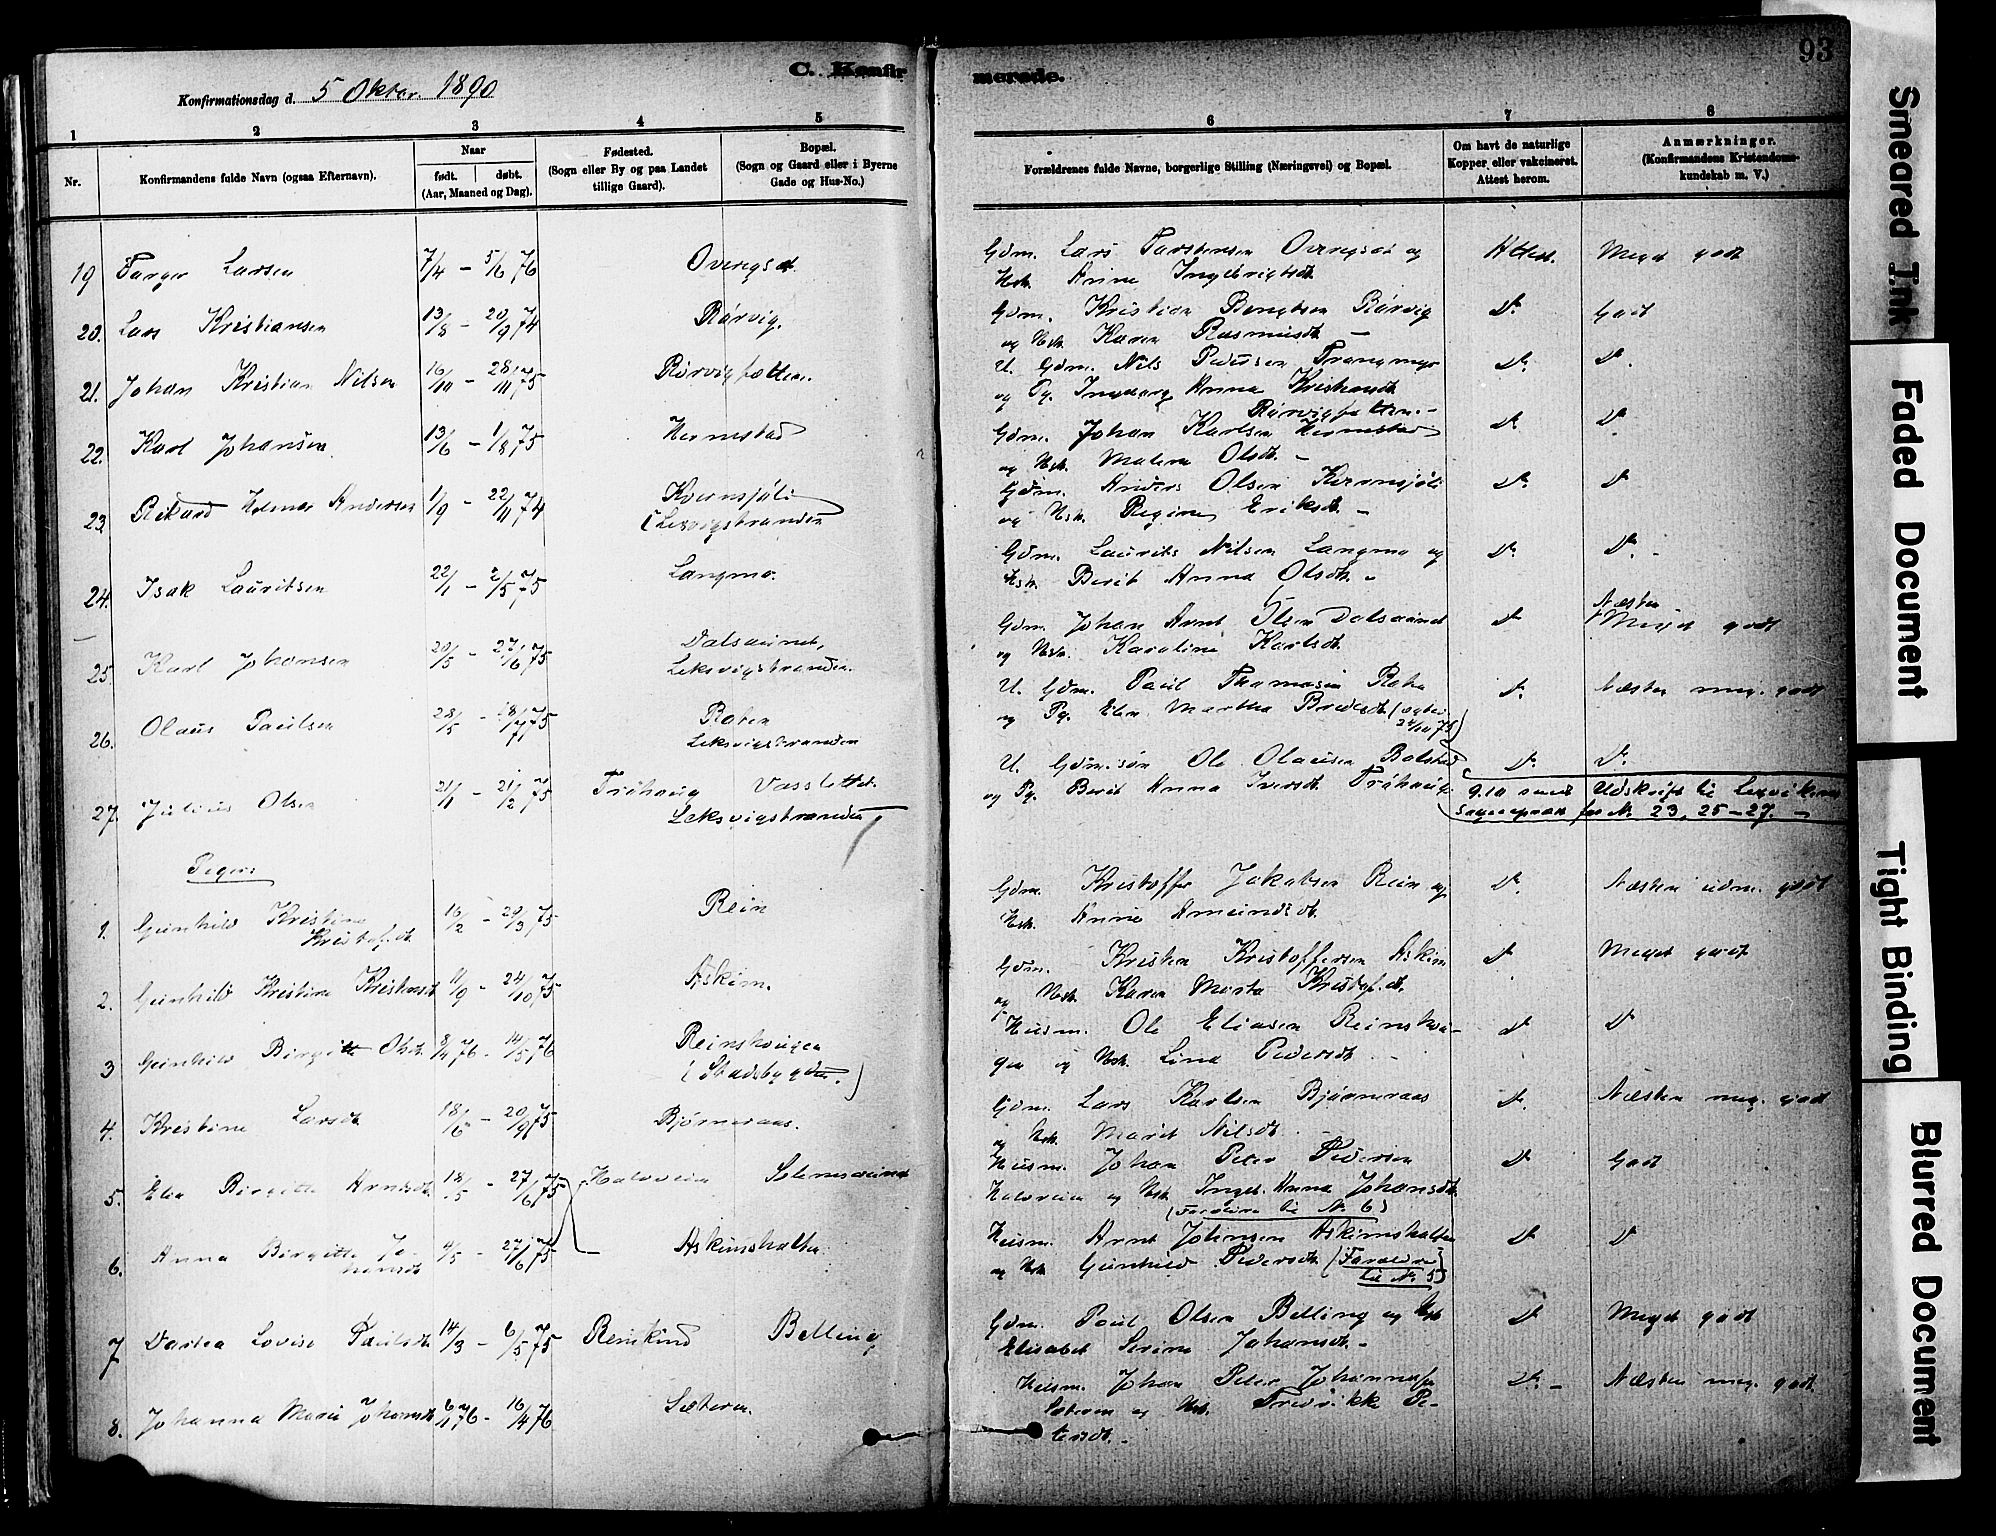 C. Konfirmerede.
93
Konfirmationsdag d. 5 Oktbr. 1890
1 2 3 4 5 6 7 8
Nr.
Konfirmandens fulde Navn (ogsaa Efternavn).
Naar
født. døbt.
(Aar, Maaned og Dag).
Fødested.
(Sogn eller By og paa Landet
tillige Gaard).
Bopæl.
(Sogn og Gaard eller i Byerne
Gade og Hus-No.)
Forældrenes fulde Navne, borgerlige Stilling (Næringsvei) og Bopæl.
Om havt de naturlige
Kopper eller vakcineret.
Attest herom.
Anmærkninger.
(Konfirmandens Kristendoms-
kundskab m. V.)
19 Larsen 7/4 - 5/6 76 Gdm. Lars og Attest. Meget godt
Hstr. Anne Ingebrigtsdt.
20. Lars Kristiansen 13/8 - 20/9 74 Rörvig. Gdm. Kristian Bengtsen Rörvig Do. Godt
og Hstr. Karen Rasmusdt. -
21. Johan Kristian Nilsen 16/10 - 28/11 75 U. Gdm. Nils Pedersen Do. Do.
og Pg. Anna Kristensdt.
22. Karl Johansen 13/6 - 1/8 75 Gdm. Johan Karlsen Do. Do.
og Hstr. Olsdt. -
23. Rikard Andersen 1/9 - 22/11 74 Gdm. Anders Olsen Do. Do.
(Leksvigstranden og Hstr. Regine Eriksdt. -
24. Isak Lauritsen 22/1 - 2/5 75 Langmo. Gdm. Laurits Nilsen Langmo og Do. Do. -
Hstr. Berit Anna Olsdt. -
25. Karl Johansen 20/5 - 27/6 75 Dalsaunet, Gdm. Johan Arnt Olsen Dalsaunet Do. Næsten Meget godt
Leksvigstranden. og Hstr. Karoline Karlsdt.
26. Olaus Paulsen 28/5 - 18/7 75 U. Gdm. Paul Thomasen Do. Næsten meg. godt
Leksvigstranden og Pg. Elen Martha
27. Julius Olsen 21/1 - 21/2 75 Tröhaug Vassletten U. Gdm.søn Ole Olausen Bolstad Do. Do.
Leksvigstranden og Pg. Berit Anna Iversdt. Tröhaug
9.10 sendt Udskrift til Lexvikens
Sognepræst for No. 23, 25-27. -
Piger:
1. Gunhild Kristine 16/2 - 29/3 75 Rein Gdm. Kristoffer Jakobsen Rein og Do. Næsten udm. godt
Kristof.dt. Hstr. Anne Amundsdt.
2. Gunhild Kristine Kristensdt. 11/9 - 24/10 75 Askim. Gdm. Kristen Kristoffersen Askim Do. Meget godt
og Hstr. Karen Marta Kristof.dt.
3 Gunhild Birgitte Olsdt. 8/4 76 - 14/5 76 Reinshaugen Husm. Ole Eliasen Reinshau- Do. Do.
(Stadsbygden.) gen og Hstr. Lina Pedersdt.
4. Kristine Larsdt. 18/6 - 20/9 75 Bjørneraas. Gdm. Lars Karlsen Bjørneraas Do. Næsten meg. godt
og Hstr. Marit Nilsdt.
5. Elen Birgitte Arntsdt. 18/5 - 27/6 75 Kalvveien Husm. Johan Peter Pedersen Do. Godt
Kalvveien og Hstr. Inger Anna Johansdt.
(Forældre til No. 6)
6. Anna Birgitte Jo- 4/5 - 27/6 75 Askimshalten Husm. Arnt Johnsen Askimshalten Do. Do.
hansdt. og Hstr. Gunhild Pedersdt. (Forældre
til No. 5)
7 Dortea Lovise Paulsdt. 14/3 - 6/5 75 Reinskind Belling Gdm. Paul Olsen Belling og Hstr. Do. Meget godt
Elisabet Serine Johansdt. -
8. Johanna Marie Johansdt. 6/1 76 - 16/4 76 Sæteren. Husm. Johan Peter Do. - Næsten meg. godt
Sæteren og Hstr. Fredrikke Pe-
tersdt. -
Smeared Ink
Faded Document
Tight Binding
Blurred Document